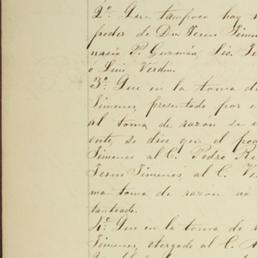 2º Que tampoco hay
poder de Don Jesus Jime
nacio P. Guzmán, Lic.
o Luis Verdin.
3º Que en la toma d
Jimenes, presentado por
al toma de razon de
ente, se dice que el po
Jimenes al C. Pedro R
Jesus Jimenes, al C. Vi
ma toma de razon no
tanteado.
4º Que en la toma de
Jimenes, otorgado al C. A